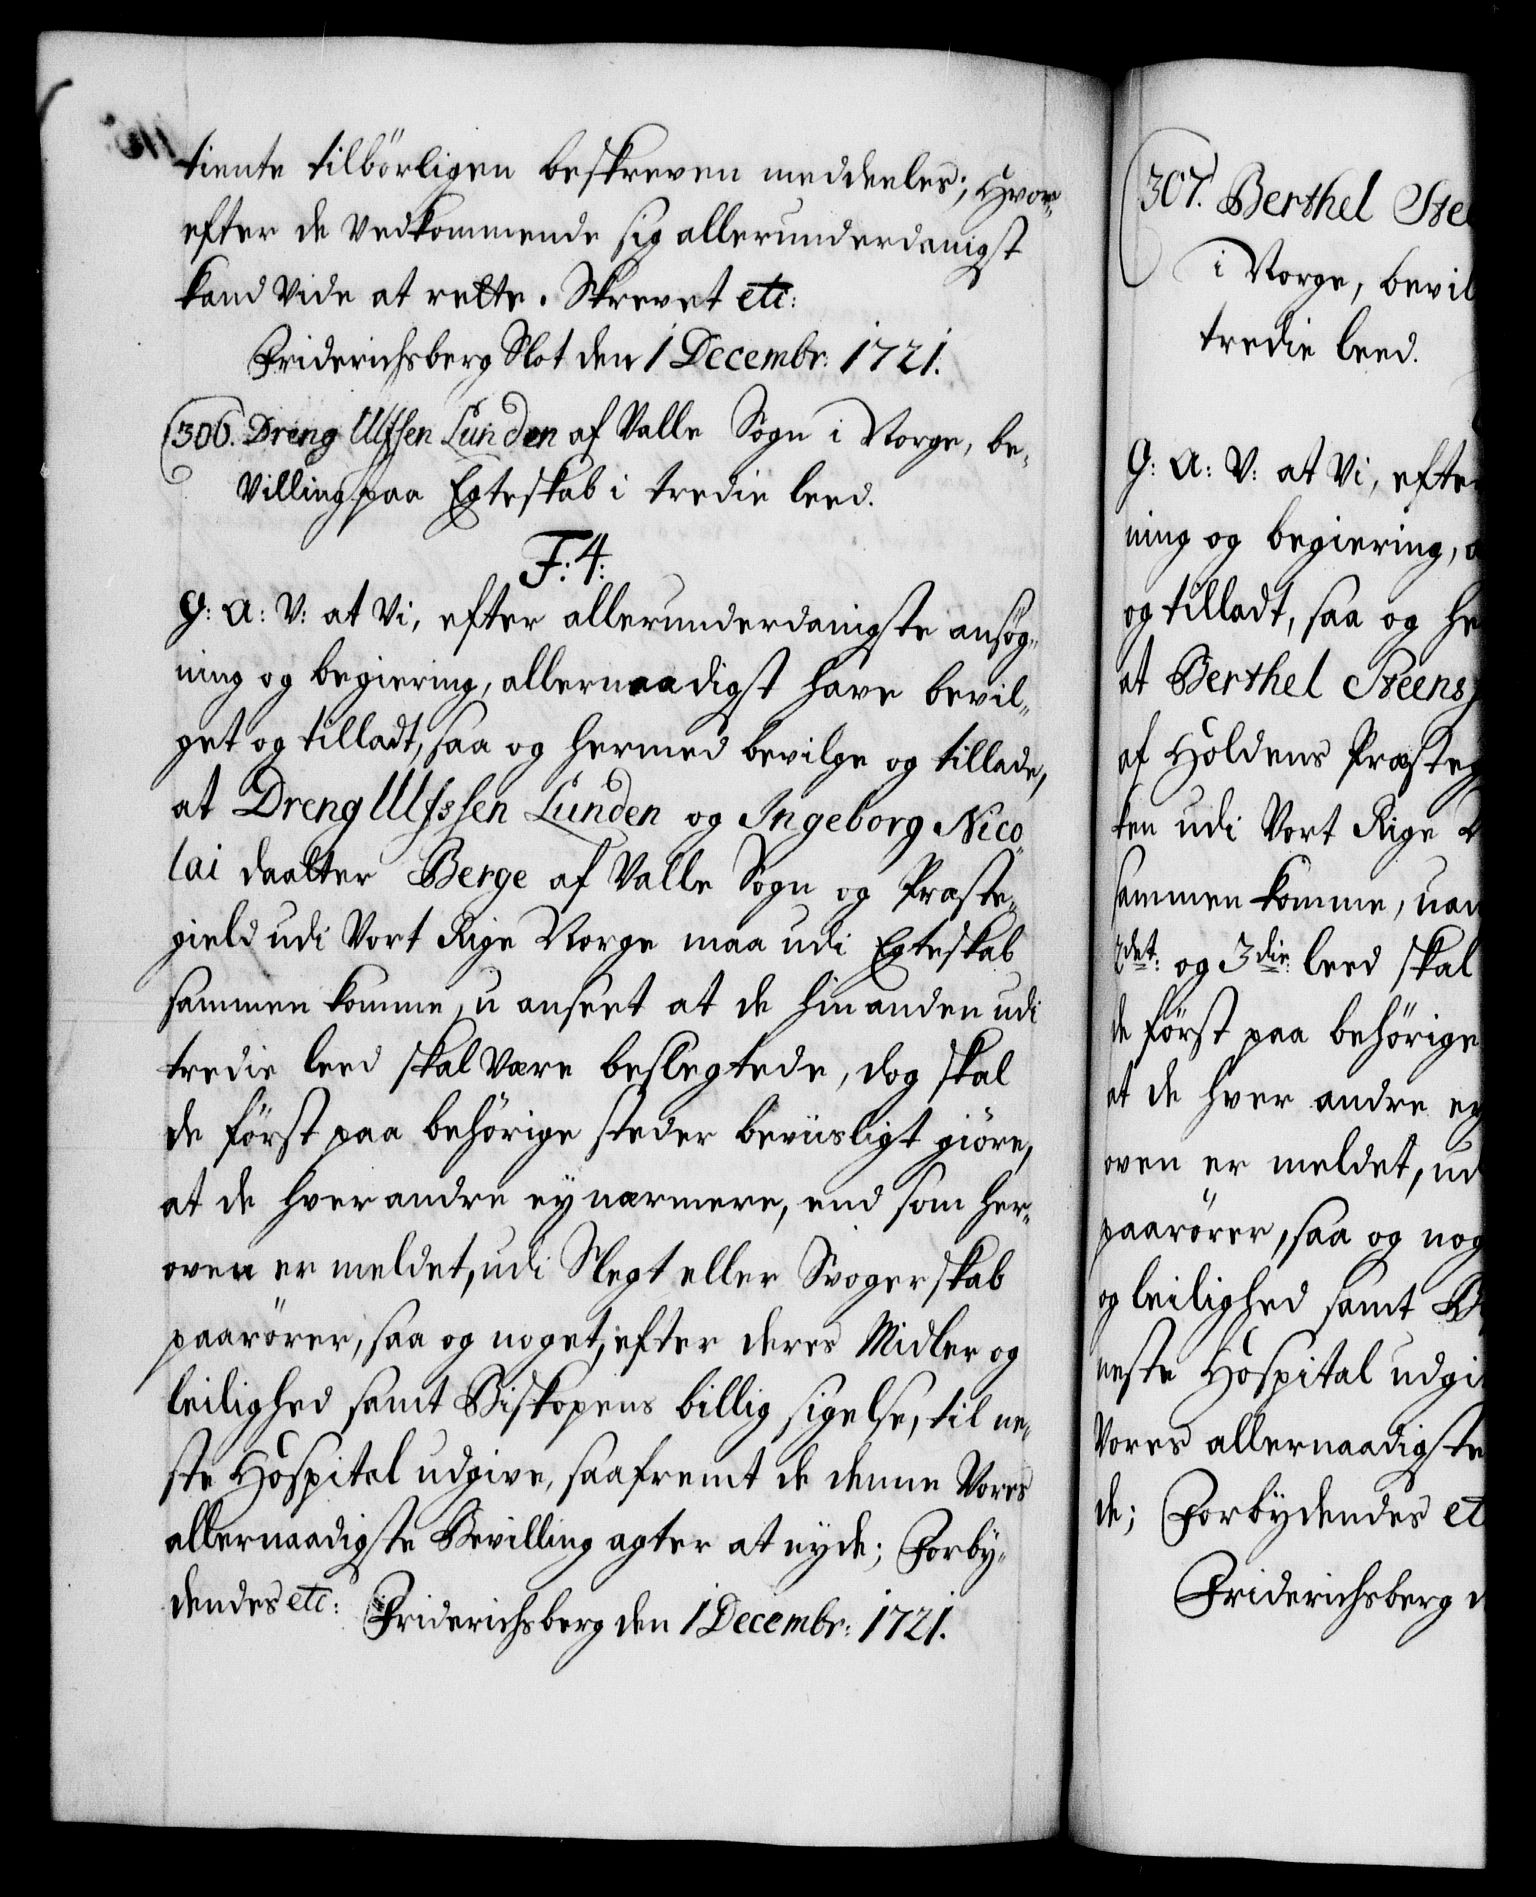 tiente tilbörligen beskreven meddeeles; Hvor-
efter de Vedkommende sig allerunderdanigst
kand Vide at rette. Skrevet etc:
Friderichsberg Slot den 1 Decembr: 1721.
306. Dreng Ulfsen Lunden af Valle Sogn i Norge, be-
Villing paa Egteskab i tredie leed.
F: 4:
G: A: V: at Vi, efter allerunderdanigste ansøg-
ning og begiering, allernaadigst have bevil-
get og tilladt, saa og hermed bevilge og tillade,
at Dreng Ulfssen Lunden og Ingeborg Nico-
lai daatter Berge af Valle Sogn og Præste-
gield udi Vort Rige Norge maa udi Egteskab
sammen komme, u anseet at de hin anden udi
tredie leed skal Være beslegtede, dog skal
de först paa behörige steder beviisligt giöre,
at de hver andre ey nærmere, end som her-
oven er meldet, udi Slegt eller Svogerskab
paarörer, saa og noget, efter deres Midler og
leilighed samt Biskopens billig sigelse, til ne-
ste Hospital udgive, saafremt de denne Vores
allernaadigste Bevilling agter at nyde; Forby-
dendes etc: Friderichsberg den 1 Decembr: 1721.
307. Berthel
i Norge, bevil
tredie leed.
G: A: V: at Vi, efter
ning og begiering, a
og tilladt, saa og he
at Berthel Steens
af Holdens Præsteg
ten udi Vort Rige
sammen komme, uan
2det: og 3die: leed skal
de först paa behörige
at de hver andre ey
oven er meldet, ud
paarörer, saa og nog
og leilighed samt
neste Hospital udgi
Vores allernaadigste
de; Forbydendes et
Friderichsberg d